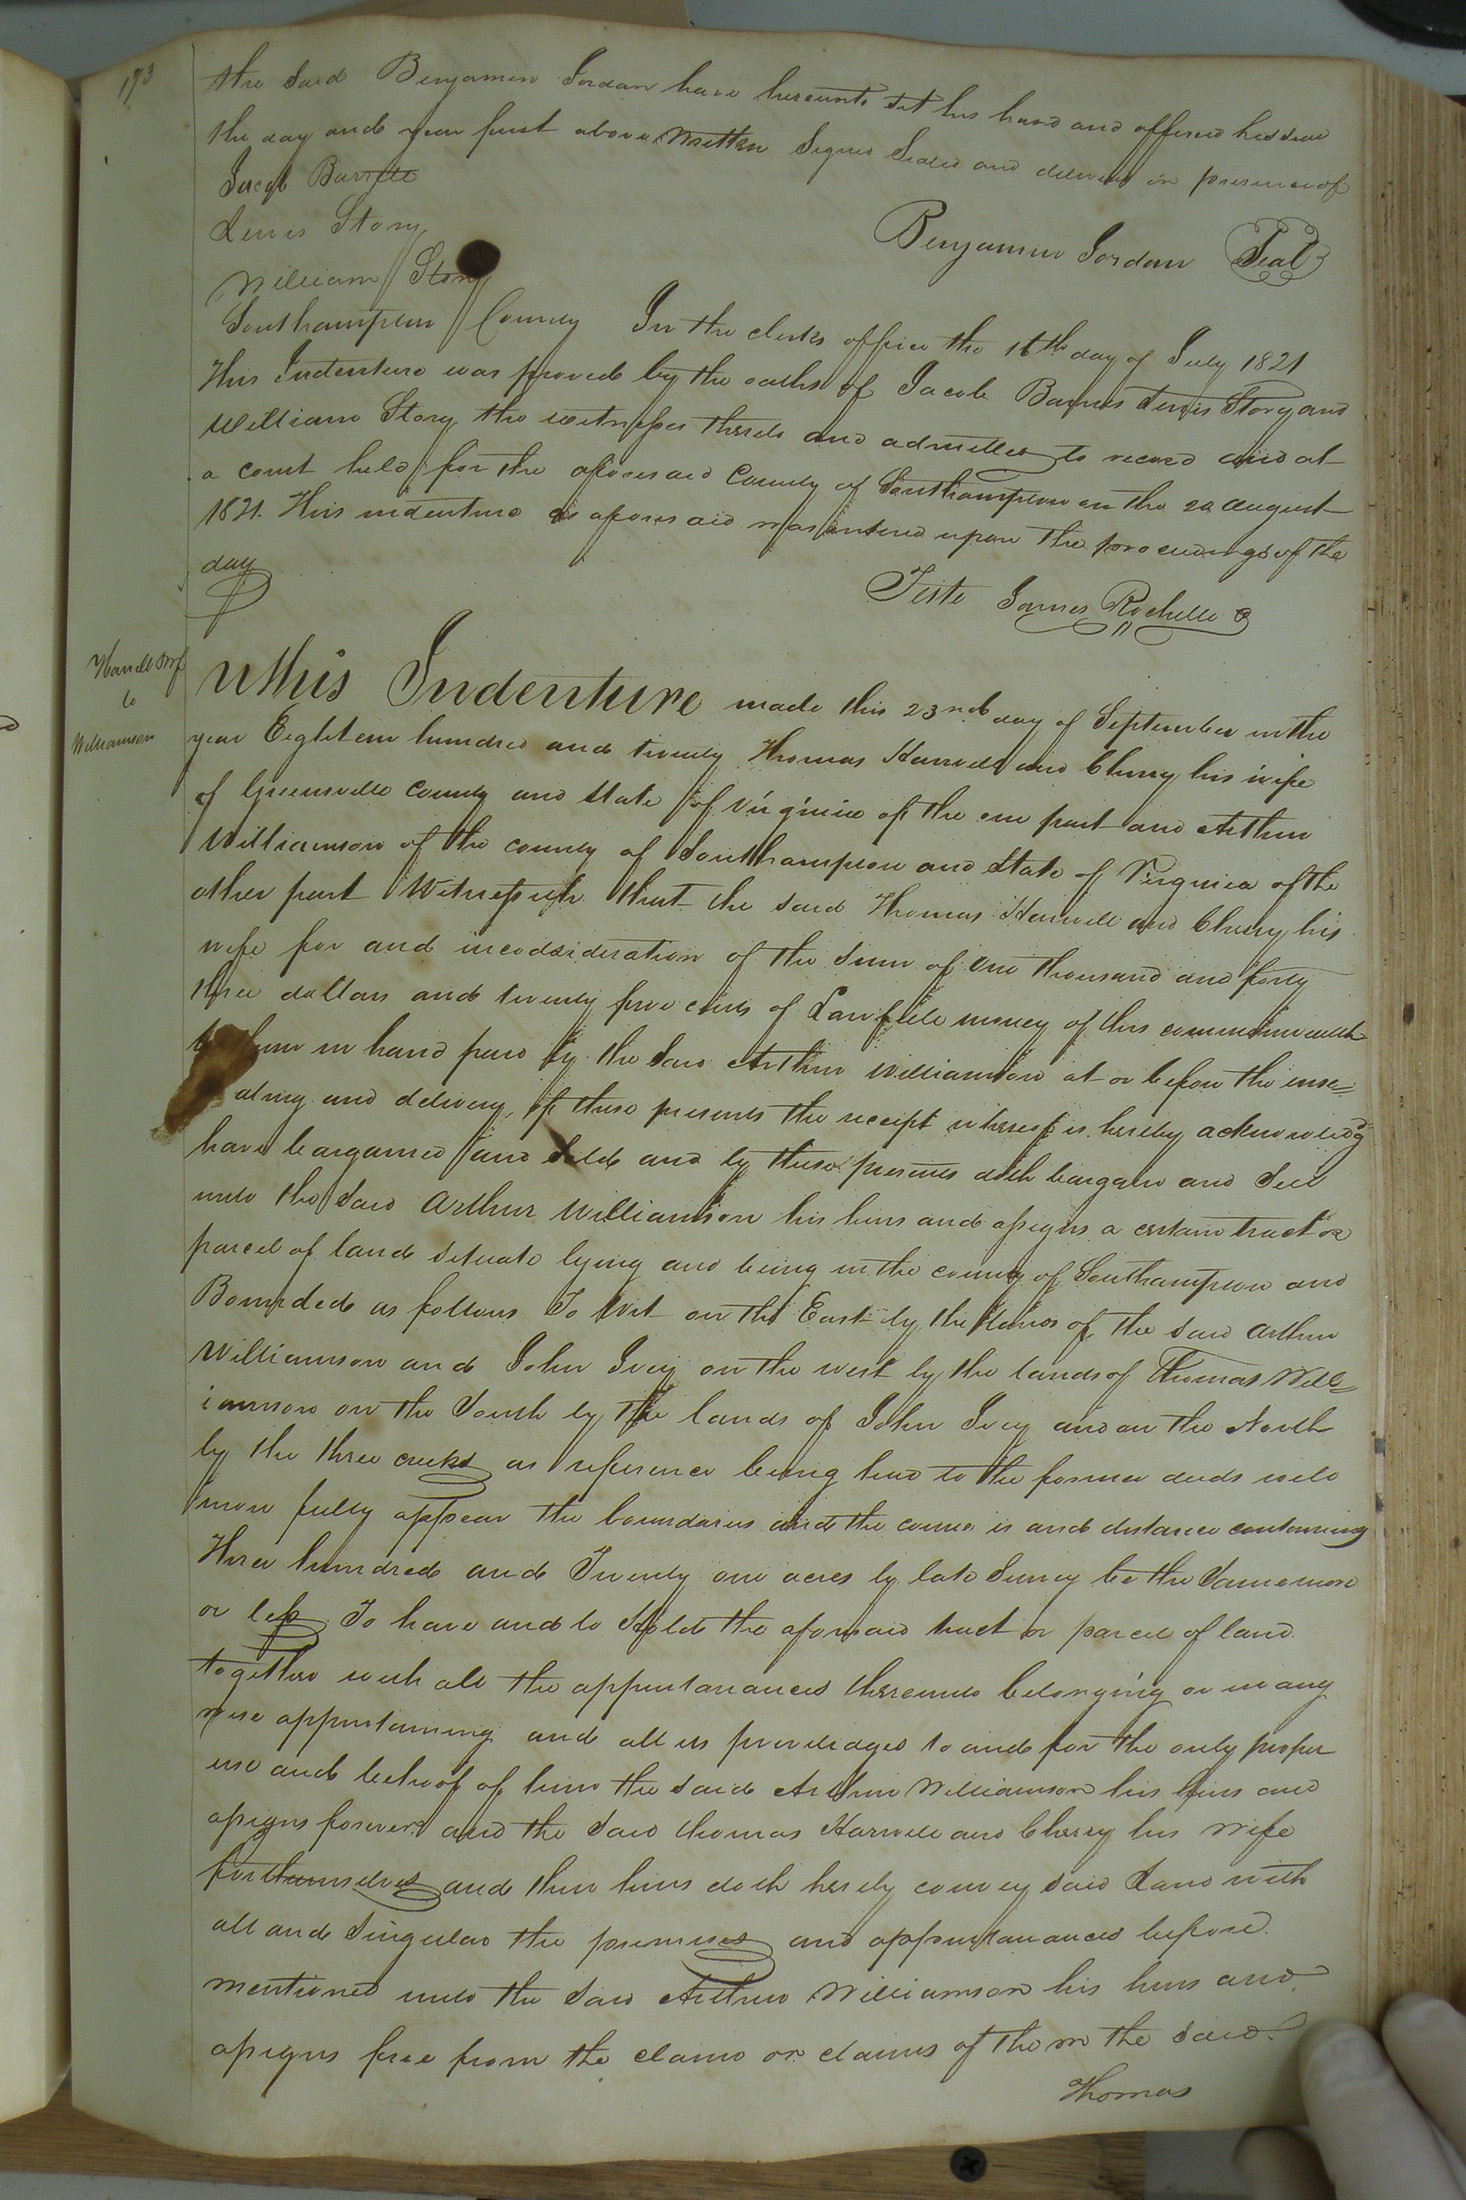 173
the said Benjamin Jordan have hereunto set his hand and affixed his seal
the day and year first above Written Signed Sealed and delivered in presence of
Jacob Barrete
Lewis Story
William Story
Benjamin Jordan Seal
Southampton County In the clerks office the 16th day of July 1821
This Indenture was proved by the oaths of Jacob Barnes Lewis Story and
William Story the witnesses thereto and admitted to record and at
a court held for the aforesaid County of Southampton on the 20 august
1821. This indenture as aforesaid was entered upon the proceedings of the
day
Teste James Rochelle
Harwell & wf
to
Williamson
This Indenture made this 23rd day of September in the
year Eighteen hundred and twenty Thomas Harwell and Cherry his wife
of Greensville County and State of Virginia of the one part and Arthur
Williamson of the county of Southampton and State of Virginia of the
other part Witnesseth that the said Thomas Harwell and Cherry his
wife for and in consideration of the sum of One thousand and forty
three dollars and twenty five cents of Lawfull money of this commonwealth
to him in hand paid by the said Arthur Williamson at or before the ense=
aling and delivery of these presents the receipt whereof is hereby acknowledg
have bargained and Sold and by these presents doth bargain and Sell
unto the said Arthur Williamson his heirs and assigns a certain tract or
parcel of land situate lying and being in the county of Southampton and
Bounded as follows To Wit on the East by the lands of the said Arthur
Williamson and John Ivey on the west by the lands of Thomas Will=
iamson on the South by the lands of John Ivey and on the North
by the three creeks as reference being had to the former deeds will
more fully appear the boundaries and the courses and distance containing
Three hundred and Twenty one acres by late Survey be the Same more
or less To have and to Hold the aforesaid tract or parcel of land
together with all the appurtanances thereunto belonging or in any
wise appurtaining and all its priviledges to and for the only proper
use and behoof of him the said Arthur Williamson his heirs and
assigns forever and the said thomas Harwell and Cherry his wife
for themselves and their heirs doth hereby convey said Land with
all and Singular the premises and appurtanances before
mentioned unto the said Arthur Williamson his heirs and
assigns free from the claim or claims of them the said
Thomas